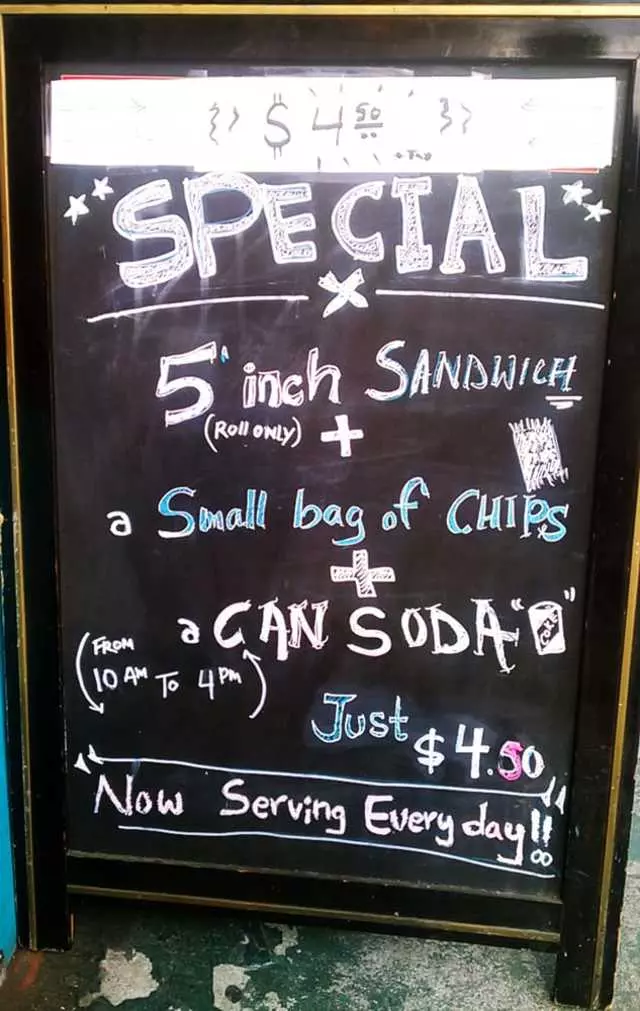 $ 4 50
+ Tax
SPECIAL
5" inch SANDWICH
(Roll ONLY) +
a Small bag of CHIPS
+
a CAN SODA "COKE"
(FROM
10 AM TO 4 PM)
Just $4.50
Now Serving Everyday!!